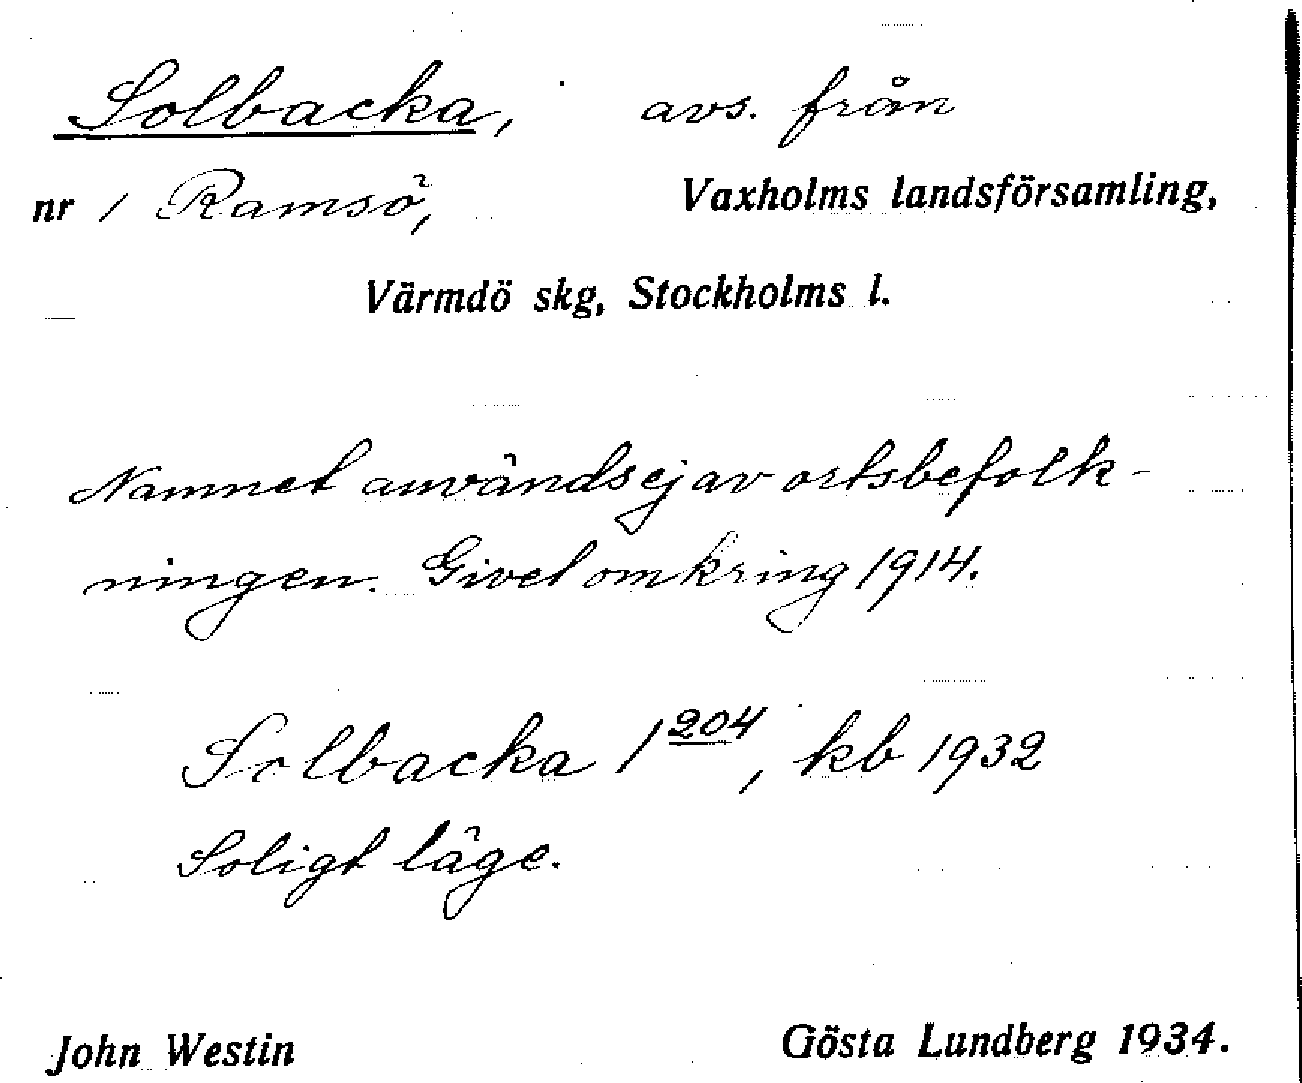 Solbacka, avs. från
nr 1 Ramsö, Vaxholms landsförsamling,
Värmdö skg, Stockholms l.
Namnet användes ej av ortsbefolk-
ningen. Givet omkring 1914.
Solbacka 1 204, kb 1932
Soligt läge.
John Westin Gösta Lundberg 1934.